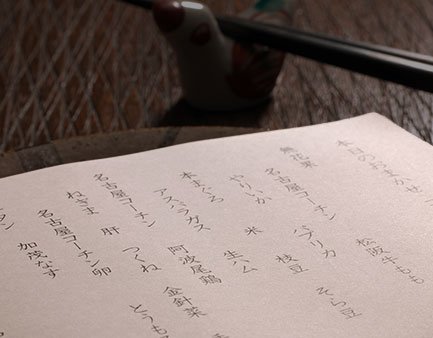 本日のおまかせ
無花果
名古屋コーチン
松阪牛もも
やりいか
パプリカ
そら豆
本まぐろ
米
枝豆
アスパラガス
生ハム
名古屋コーチン
阿波尾鶏
ねぎま
肝
つくね
金針菜
名古屋コーチン
卵
とうも
加茂なす
タン